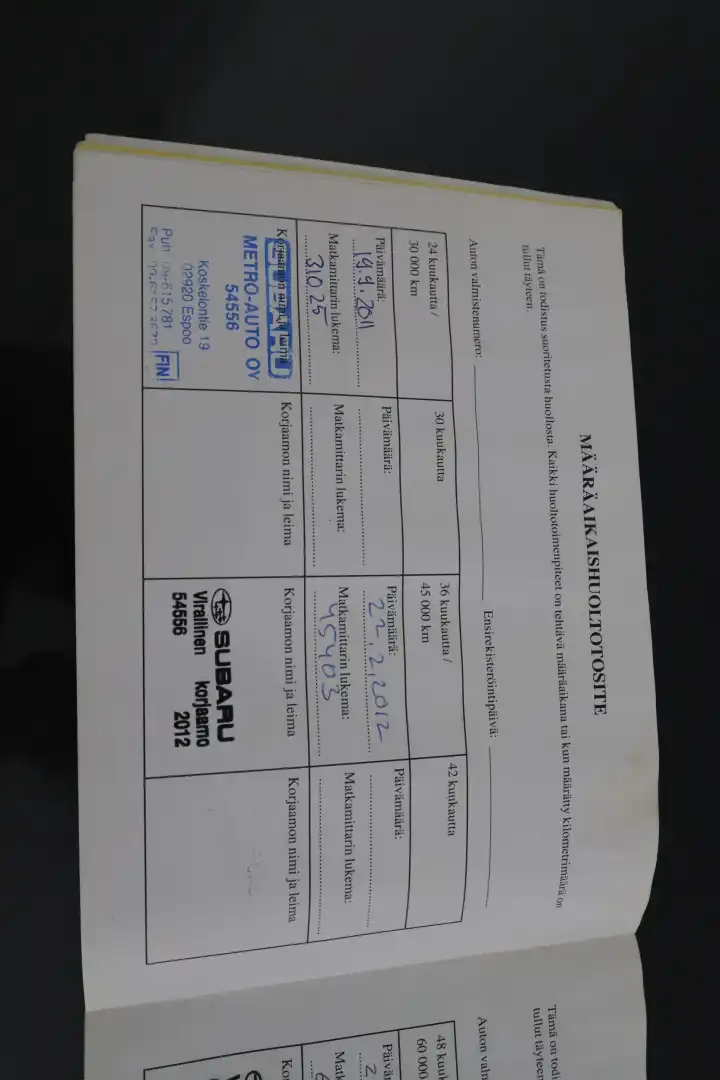 MÄÄRÄAIKAISHUOLTOTOSITE
Tämä on todistus suoritetusta huollosta. Kaikki huoltotoimenpiteet on tehtävä määräaikana tai kun määrätty kilometrimäärä on
tullut täyteen.
Auton valmistenumero: Ensirekisteröintipäivä:
24 kuukautta /
30 000 km
Päivämäärä:
19.9.2011
Matkamittarin lukema:
31025
Korjaamon nimi ja leima
SUBARU
METRO-AUTO OY
54556
Koskelontie 19
02920 Espoo
Puh 09-615 781
FIN
30 kuukautta
Päivämäärä:
Matkamittarin lukema:
Korjaamon nimi ja leima
36 kuukautta /
45 000 km
Päivämäärä:
22.2.2012
Matkamittarin lukema:
45403
Korjaamon nimi ja leima
SUBARU
Virallinen korjaamo
54556 2012
42 kuukautta
Päivämäärä:
Matkamittarin lukema:
Korjaamon nimi ja leima
Tämä on todi
tullut täyteen
Auton valm
48 kuuk
60 000
Päivän
2
Matk
Ko